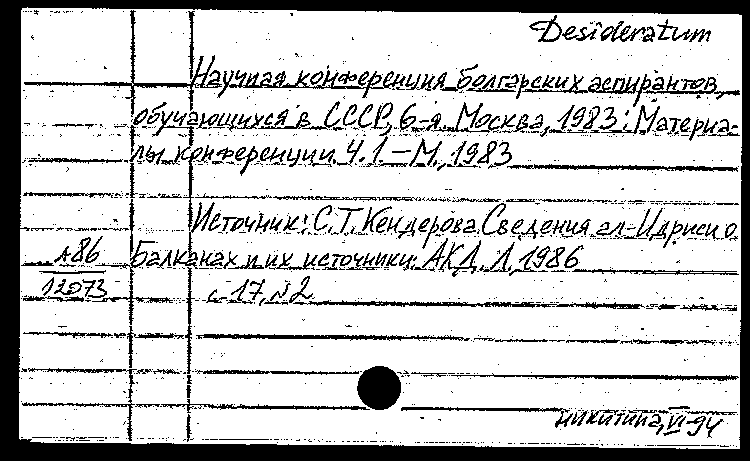 Desideratum
Научная конференция болгарских аспирантов,
обучающихся в СССР, 6-я. Москва, 1983: Материа-
лы конференции. Ч.1 – М., 1983
Источник: С.Т. Кендерова. Сведения ал-Идриси о
А86 Балканах и их источники: АКД. Л, 1986
12073 с.17, №2
Никитина, VI-94